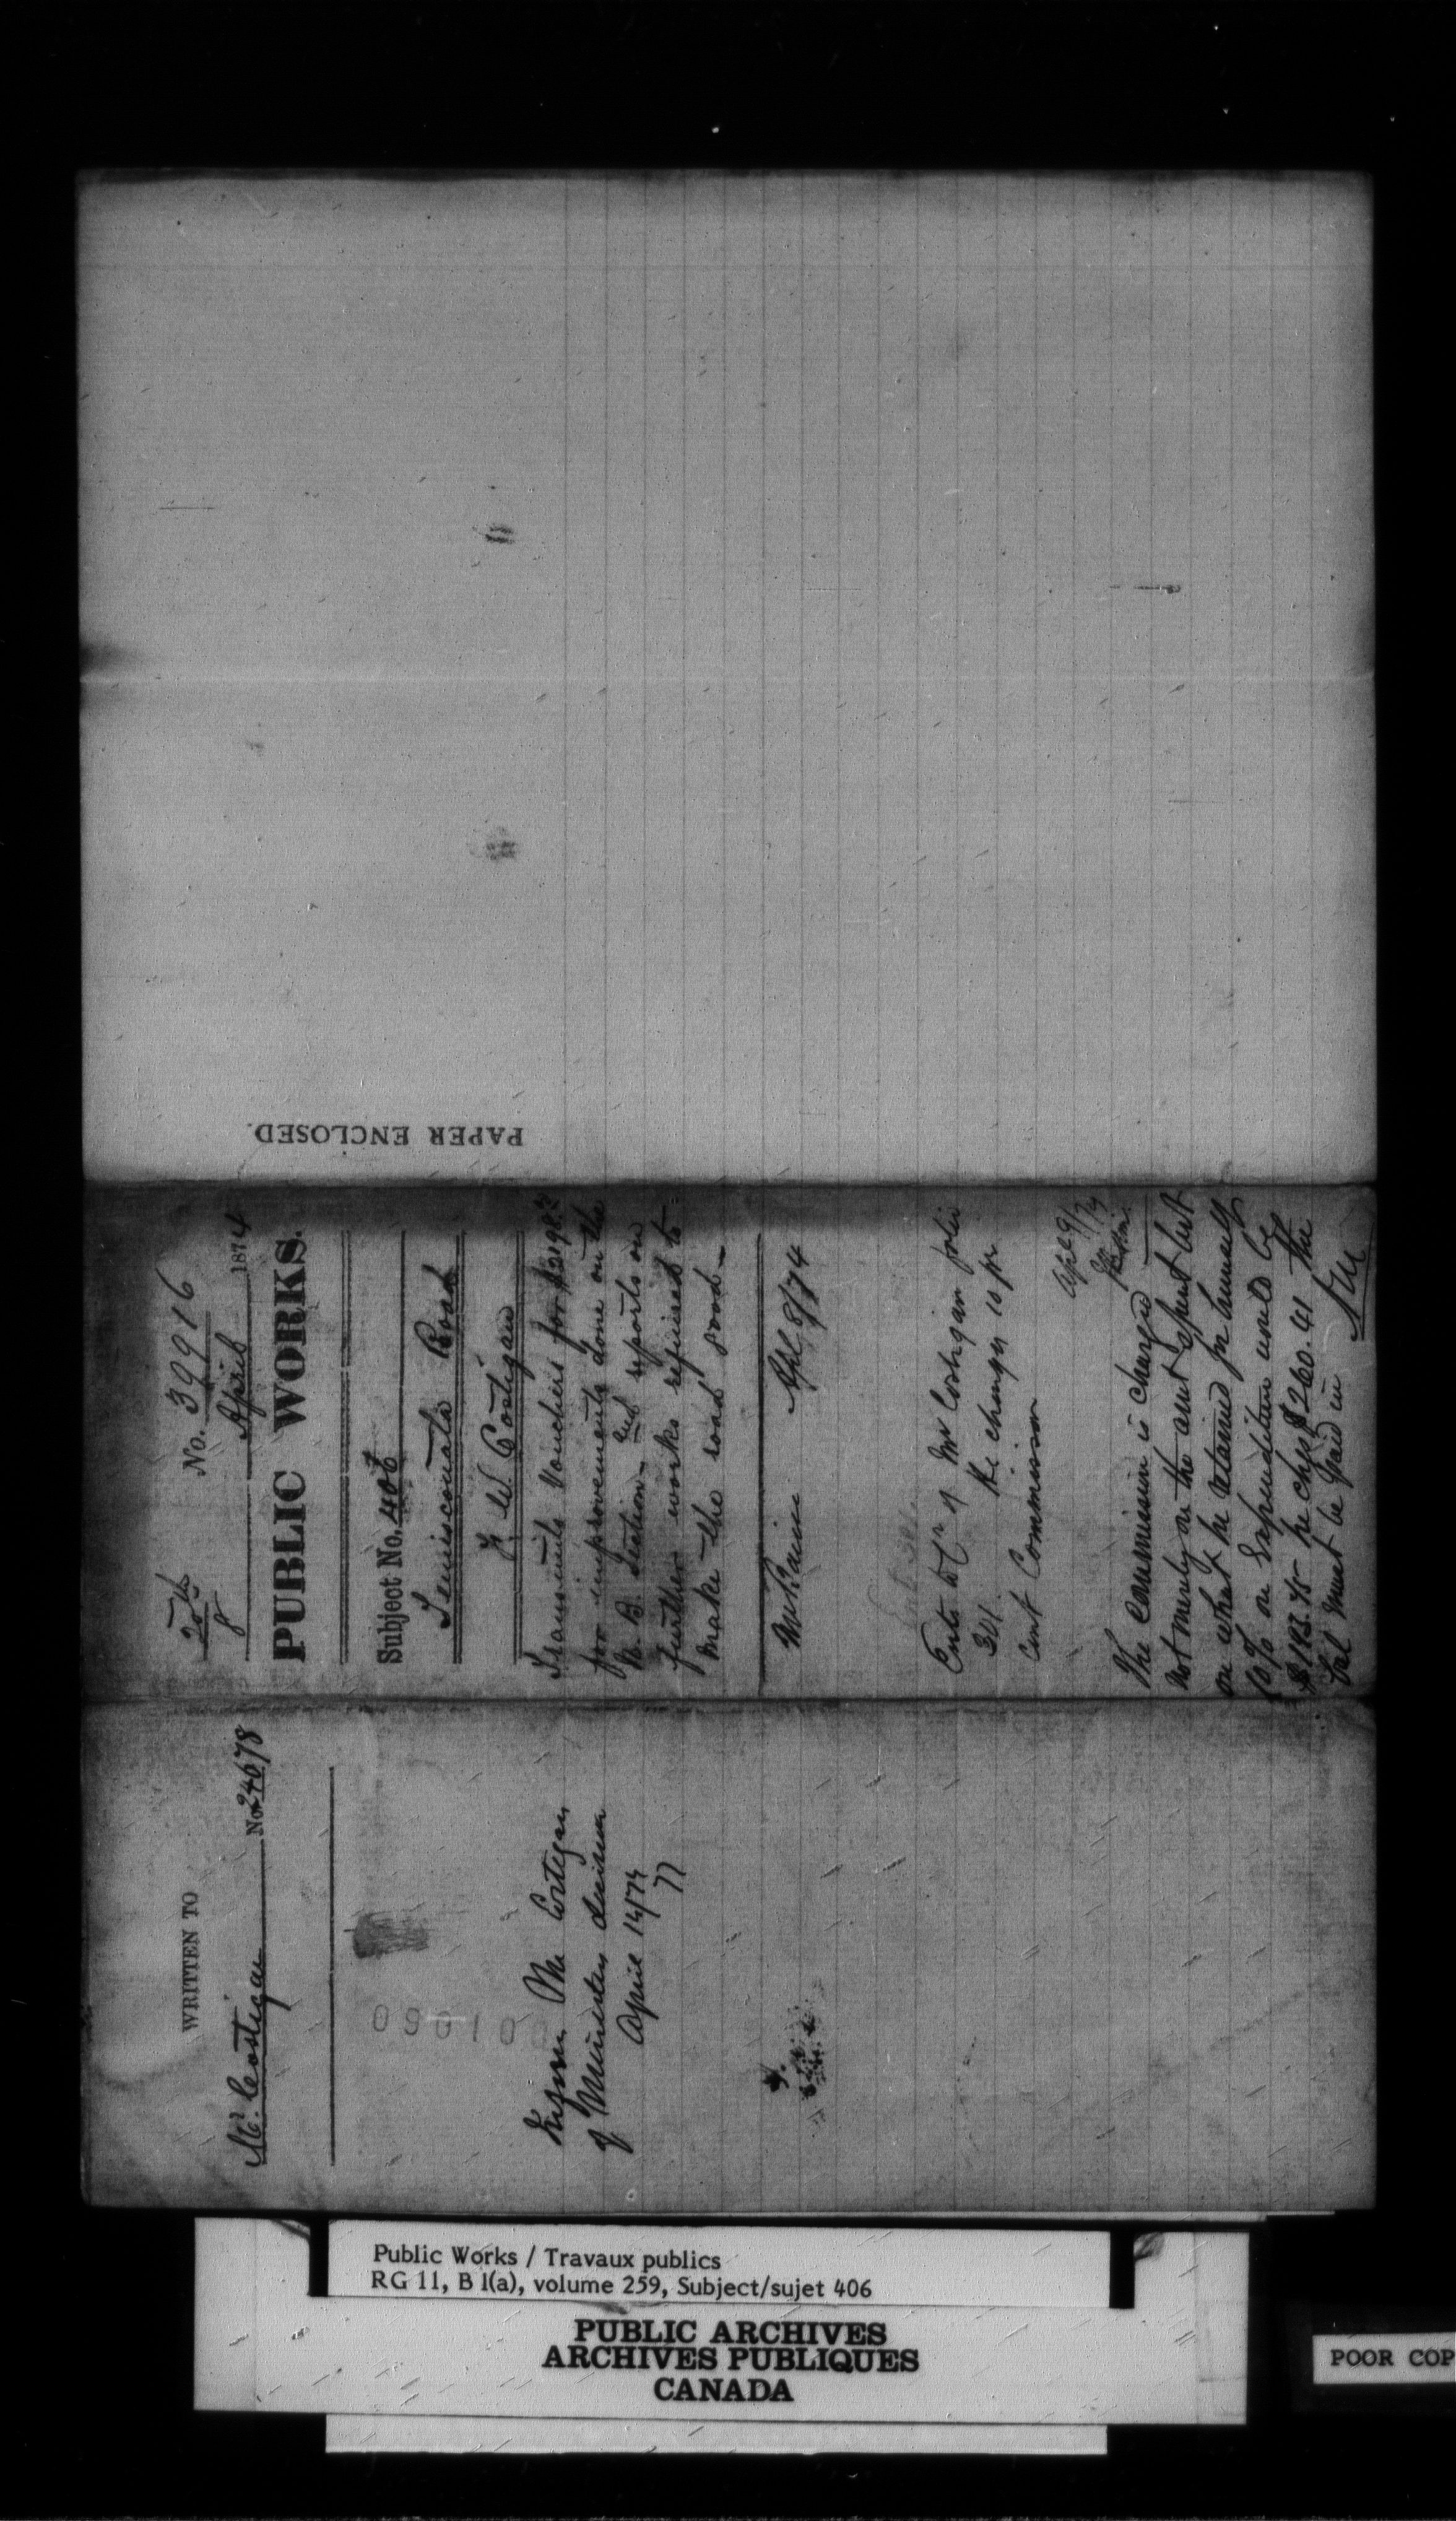 PAPER ENCLOSED.
No. 39916
20th
8 April 1874
PUBLIC WORKS.
Subject No. 406
Temiscouata Road
J. W. Costigan
Transmits Vouchers for
for improvements done on the
N. B. Section and reports on
further works required to
make the road good —
Apl 8/74
Entr of Mr Costigan folio
301. He charges 10 pr
cent Commission
Apl 9/74
The Commission is charged
not merely on the amt spent but
on what he retains for himself
10% on Expenditure would be
$ 193.45 he chgs $ 260.41 The
bal must be paid in
WRITTEN TO
Mr. Costigan No. 24678
090100
Inform Mr Costigan
of Ministers decision
April 14/74
Public Works / Travaux publics
RG 11, B 1(a), volume 259, Subject/sujet 406
PUBLIC ARCHIVES
ARCHIVES PUBLIQUES
CANADA
POOR COP